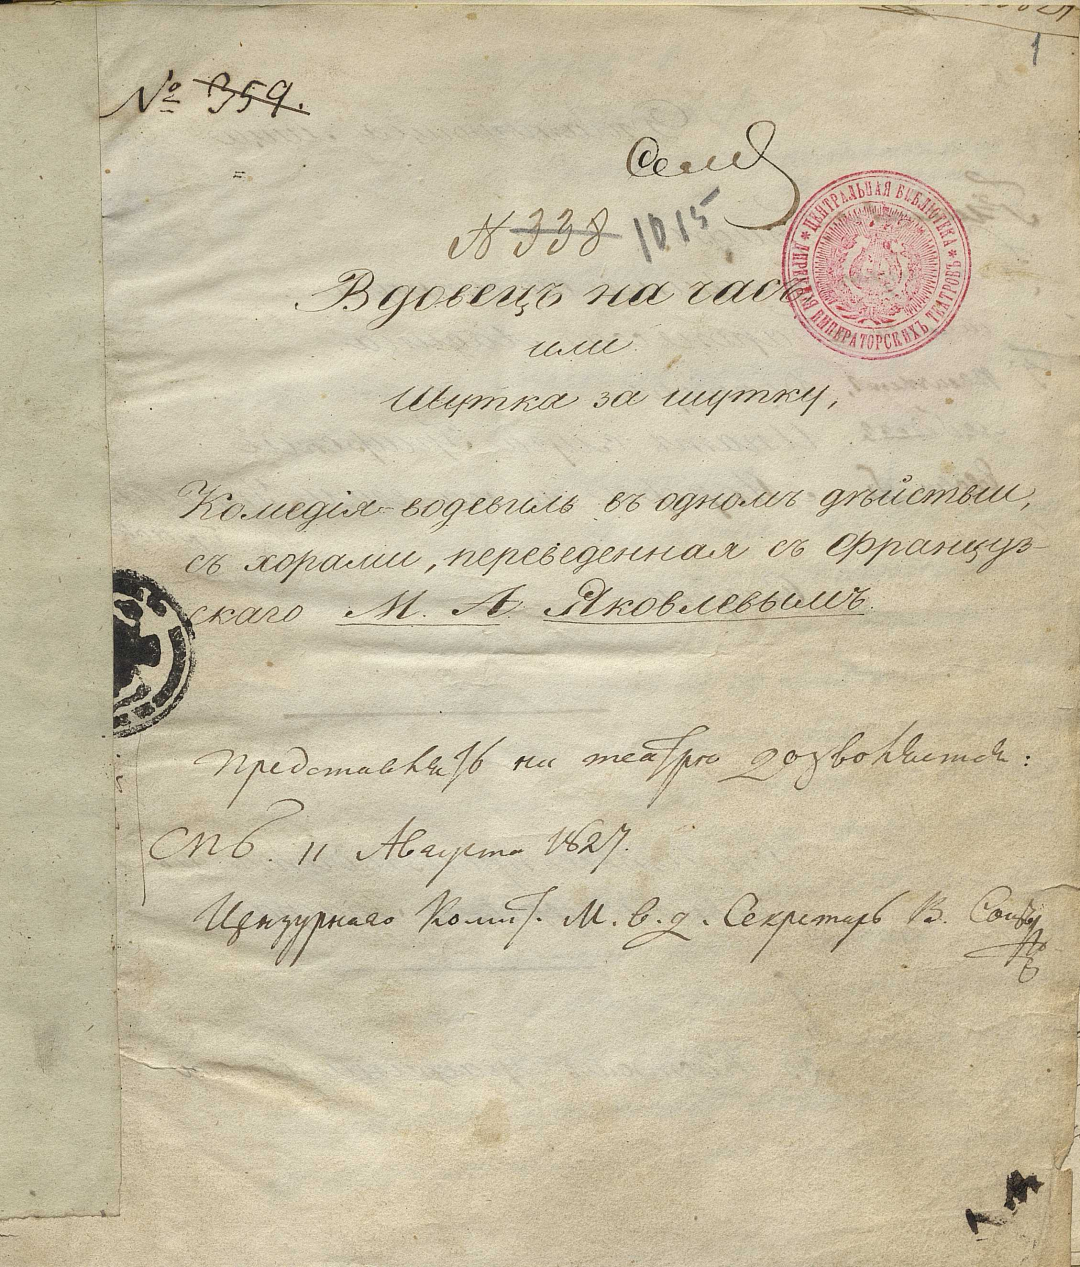 1
№ 359.
N 338 1015
Вдовецъ на часъ
или
Шутка за шутку,
Комедія-водевиль въ одномъ дѣйствіи,
съ хорами, переведенная съ Француз-
скаго М. А. Яковлевымъ.
ЦЕНТРАЛЬНАЯ БИБЛІОТЕКА * ИМПЕРАТОРСКИХЪ ТЕАТРОВЪ *
Представлять на театрѣ дозволяется:
СПб. 11 Августа 1827.
Цензурнаго Комит. М. в. д. Секретарь В.